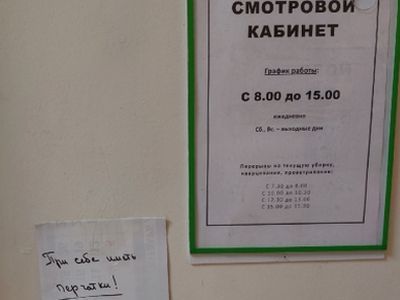 СМОТРОВОЙ
КАБИНЕТ
График работы:
С 8.00 до 15.00
ежедневно
Сб, Вс. – выходные дни
Перерывы на текущую уборку,
кварцевание, проветривание:
С 7.30 до 8.00
С 10.00 до 10.20
С 12.30 до 13.00
С 15.00 до 15.30
При себе иметь
перчатки!